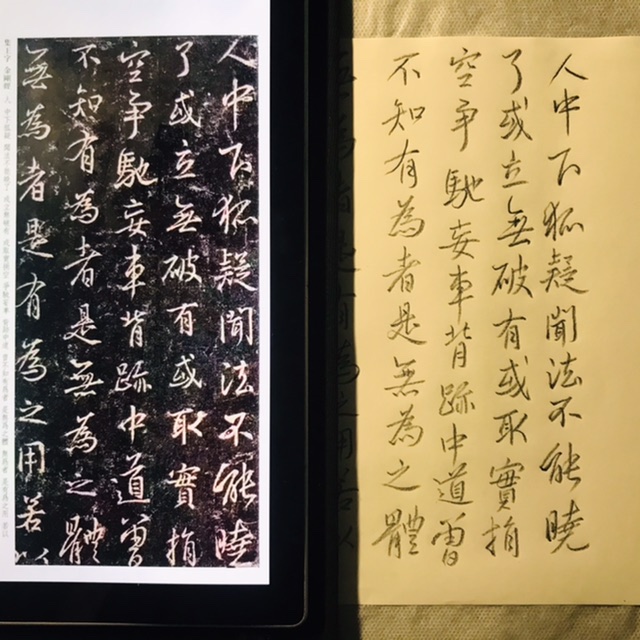 人中下狐疑聞法不能曉
了或立無破有或取實捐
空争馳妄車背跡中道曾
不知有為者是無為之體
無為者是有為之用若以
集王字金剛經
人中下狐疑聞法不能曉
了或立無破有或取實捐
空争馳妄車背跡中道曾
不知有為者是無為之體